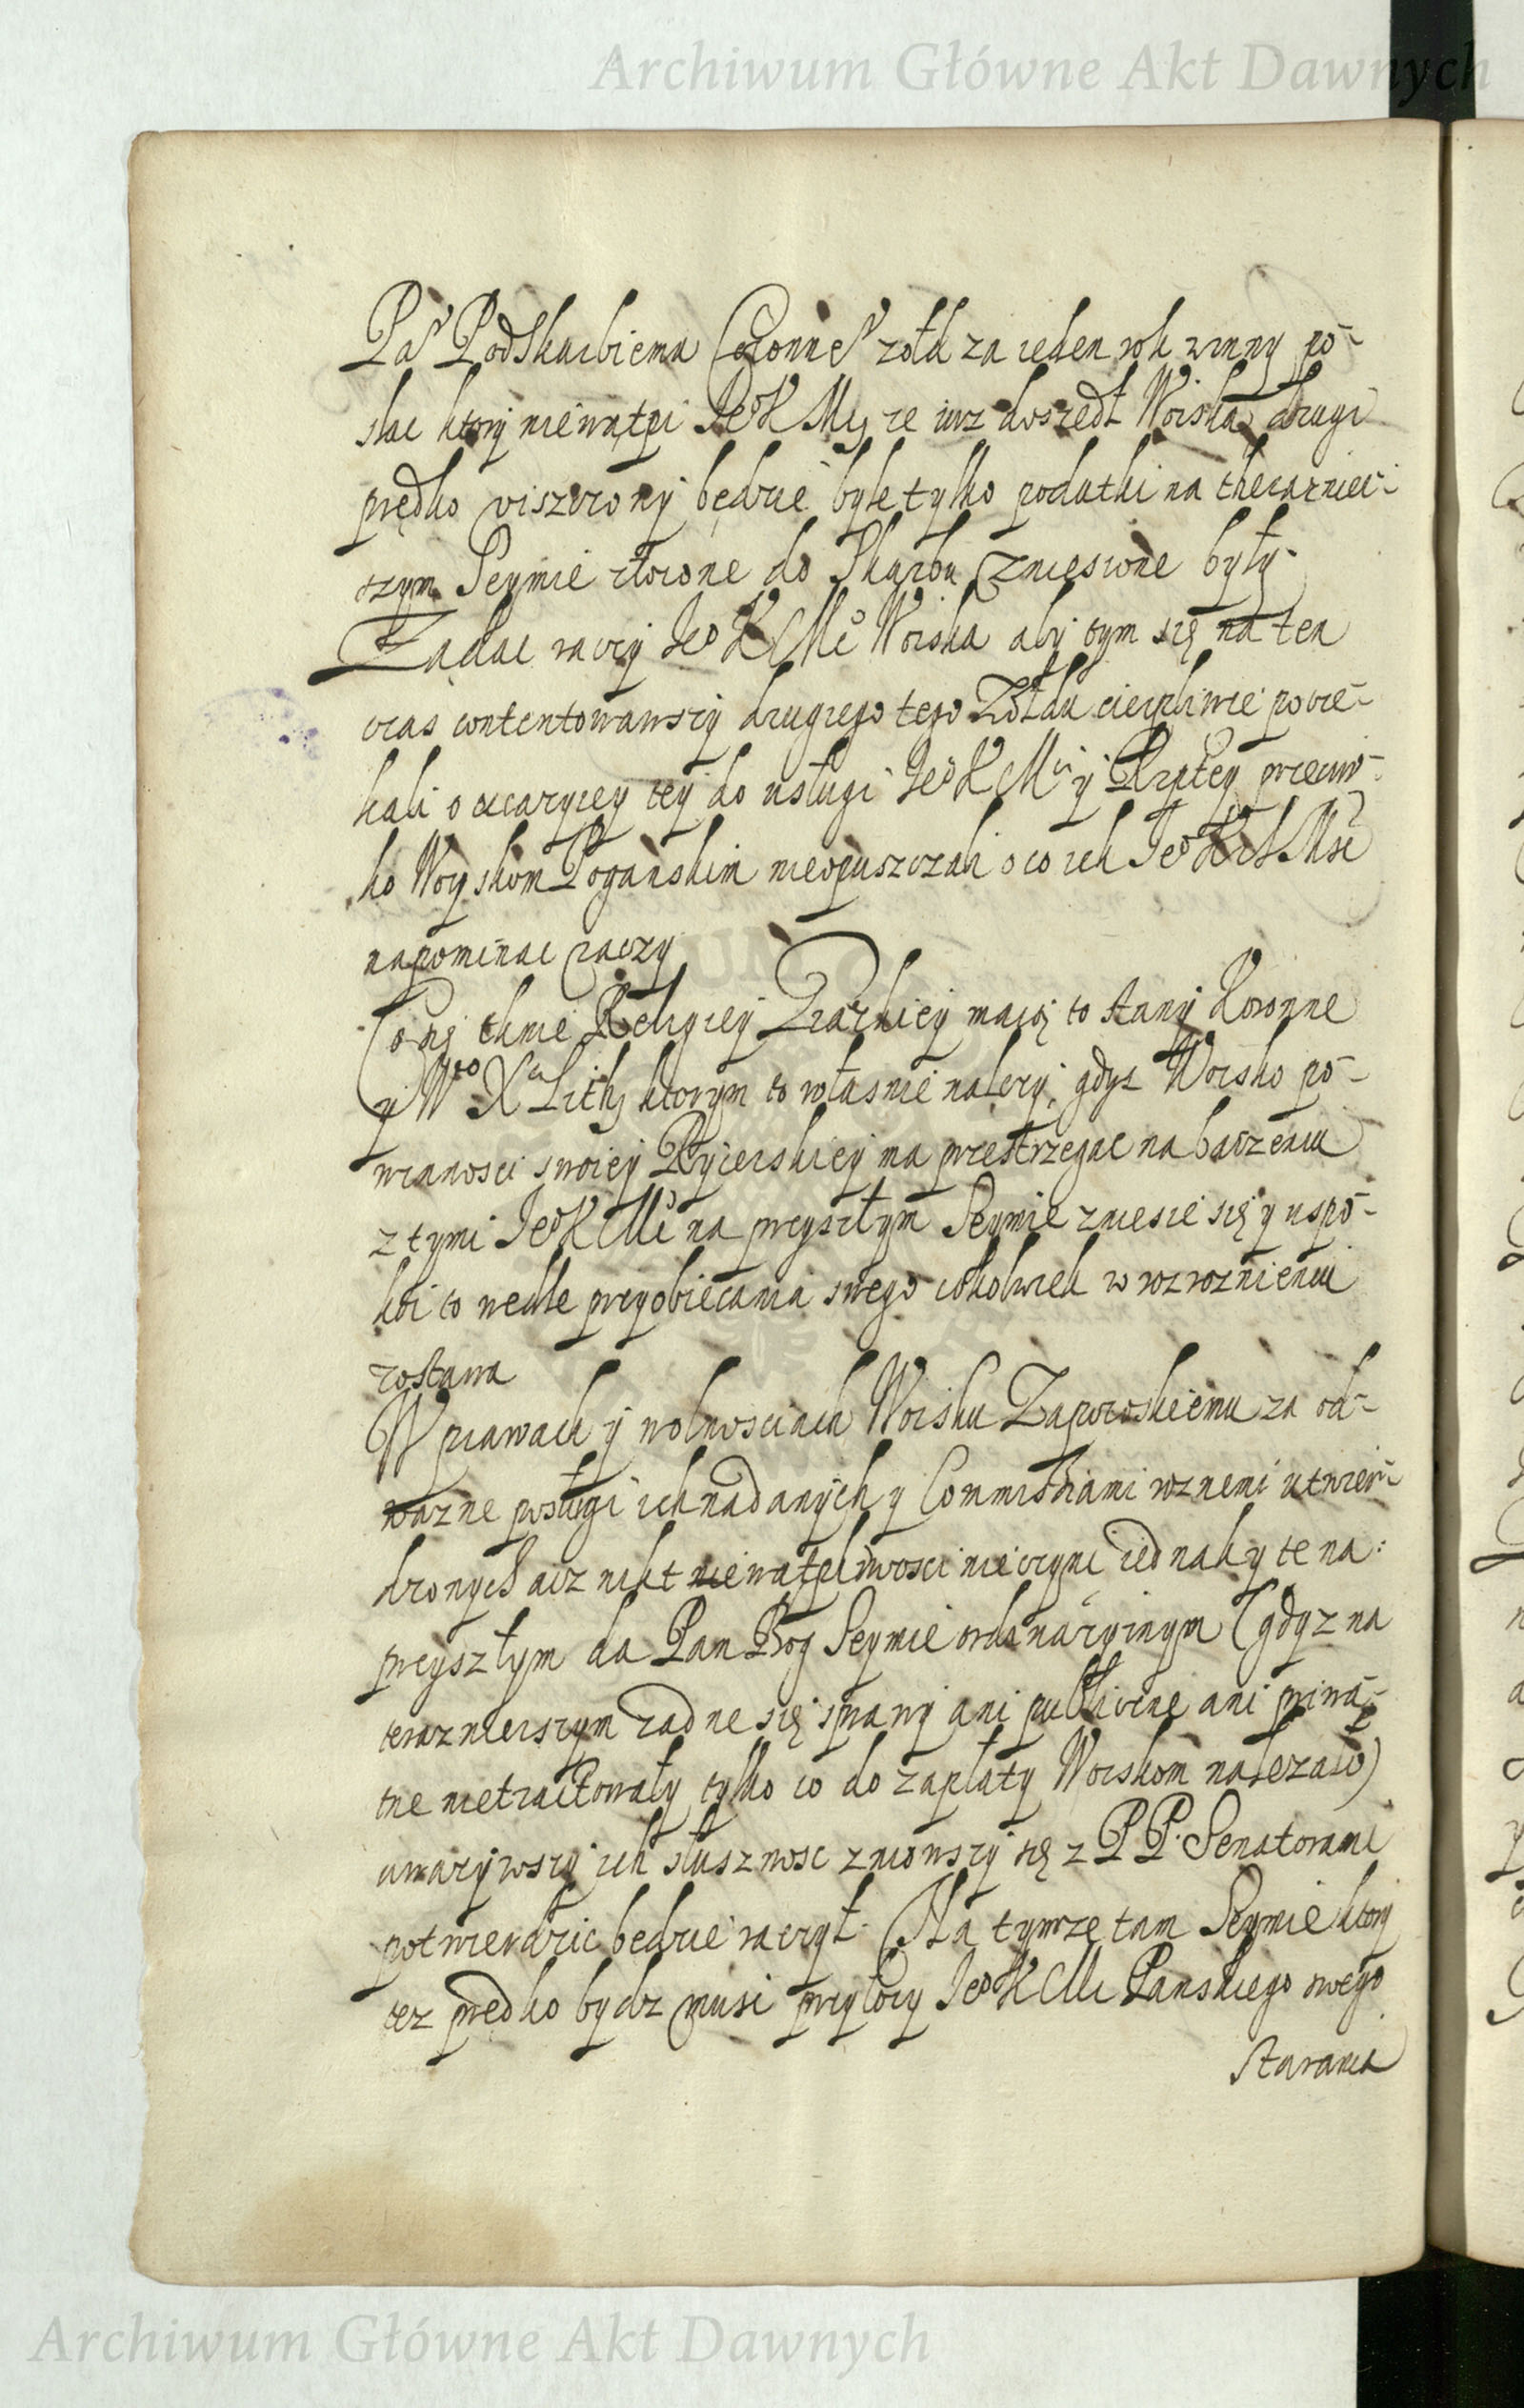 Archiwum Główne Akt Dawnych
Pa˜ Podskarbiemu Coronne˜ zołd za ieden rok winny po-
słac ktory niewątpi Je° K Mś ze iusz doszedł Woiska drugi
prędko viszczony będzie byle tylko podatki na theraznieı-
szym Seymie złozone do Skarbu zniesione były.
Ządac raczy Je° K Mć Woiska aby tym się na ten
czas contentowawszy drugiego tego Zołdu cierpliwie pocze-
kali o okazyiey tey do usługi Je° K Mci y Rzptey przeciw-
ko Woyskom Poganskim nieopuszczali o co ich Je° Kr Msc
napominac raczy
Co się tknie Religiey Graeckiey maią to stany Koronne
y W° X° Lith, ktorym to własnie nalezy, gdysz Woisko po-
winnosci swoiey Rycerskiey ma przestrzegac na baczeniu
z tymi Je° K Mć na przyszłym Seymie zniesie się y uspo-
koi to wedle przyobiecania swego cokolwiek w rozroznieniu
zostawa
W prawach y wolnosciach Woisku Zaporoskiemu za od-
wazne posługi ich nadanych y Commissiami roznemi utwier-
dzonych acz nikt niewątpliwosci nie czyni iednak y te na:
przyszłym da Pan Bog Seymie ordinaryinym (gdyz na
teraznieiszym zadne się sprawy ani publiczne ani priwa-
tne nietractowały tylko co do zapłaty Woiskom nalezało)
uwazywszy ich słusznosc zniowszy się z P P. Senatorami
potwierdzic będzie raczył. Na tymze tam Seymie ktory
tez prędko bydz musi przyłozy Je° K Mc Panskiego swego
starania
Archiwum Główne Akt Dawnych